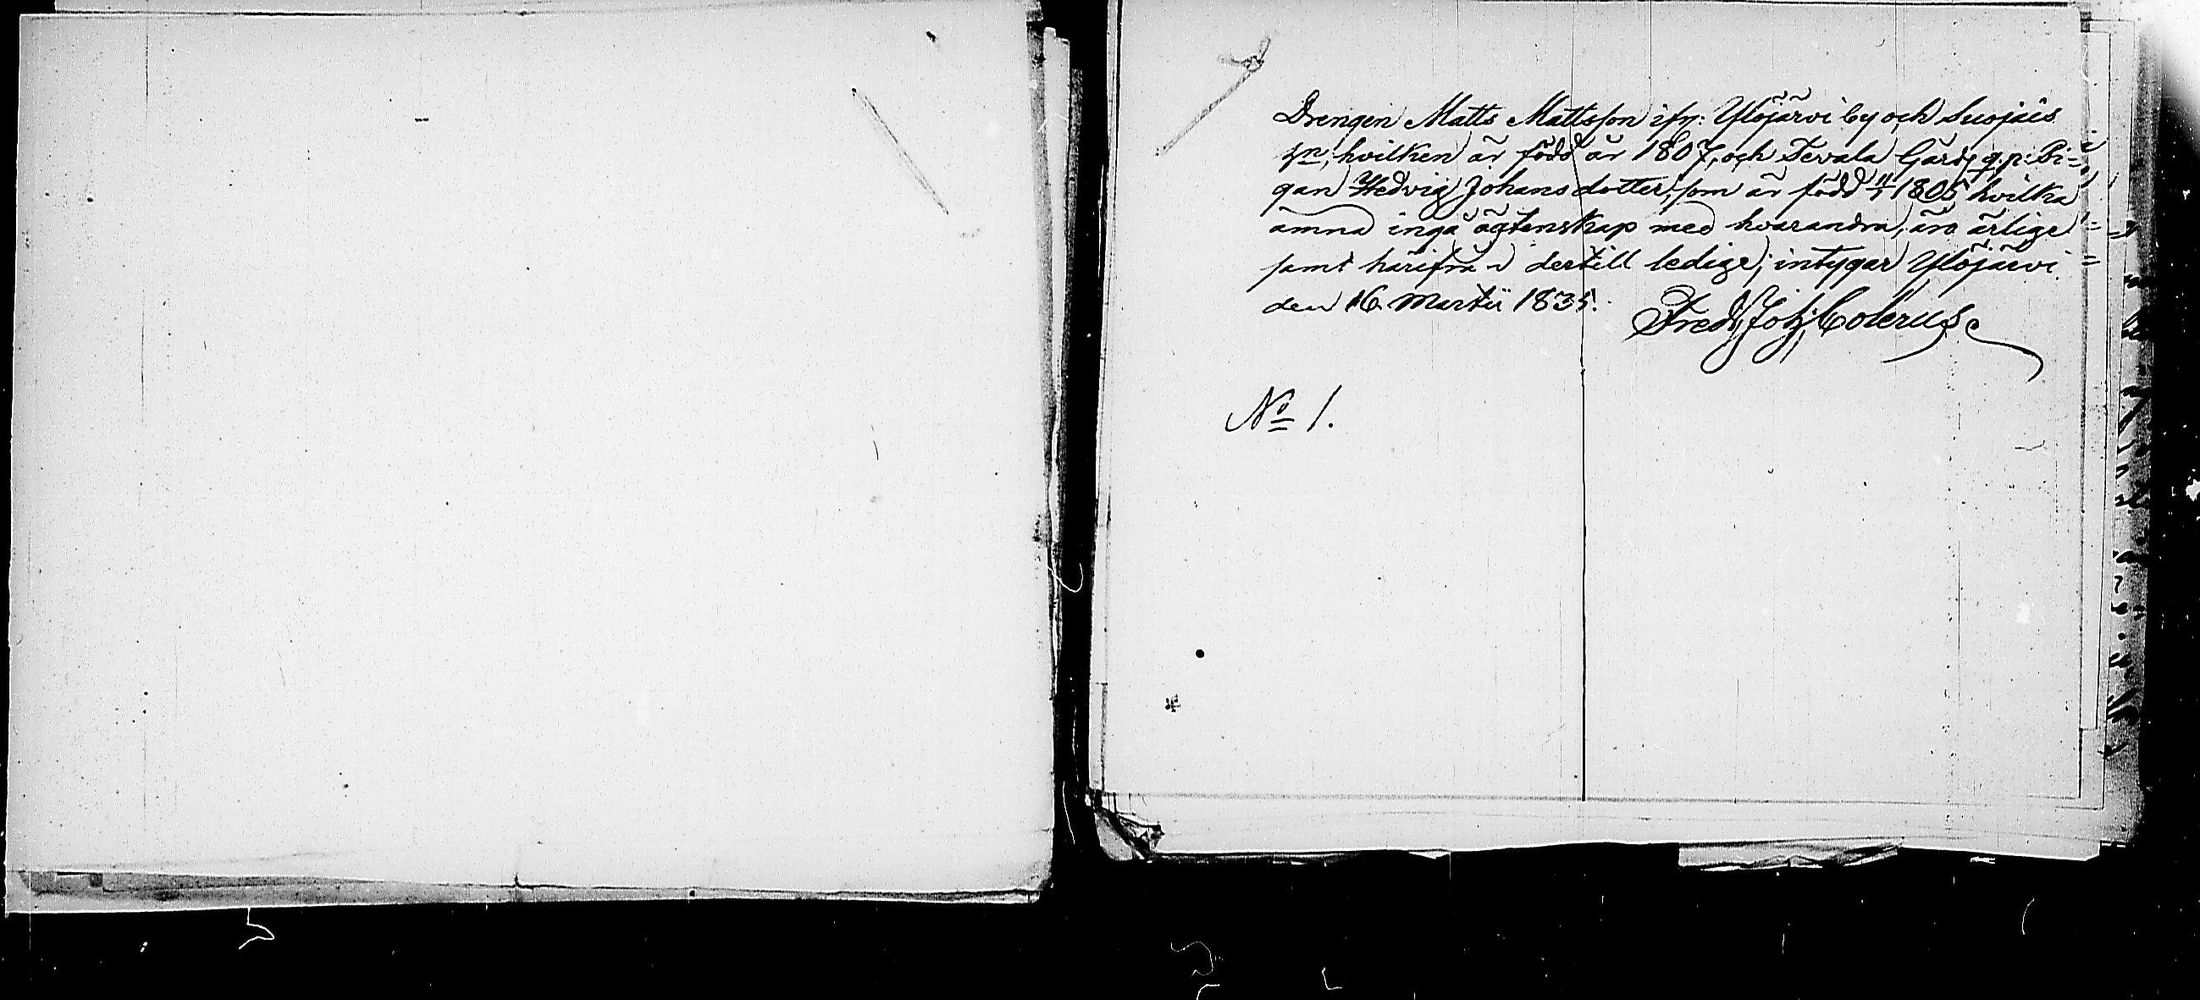 Drengen Matts Mattsson ifr: Ylöjärvi by och Suojais
hn; hvilken är född år 1807, och Tevala Gårds q.p: Pi=
gan Hedvig Johansdotter, som är född 11/1 1805 hvilka
ämna ingå ägtenskap med hvarandra, äro ärlige
samt härifrån dertill ledige; intygar Ylöjärvi
den 16 Martii 1835. Fredr Joh: Colerus
No 1.